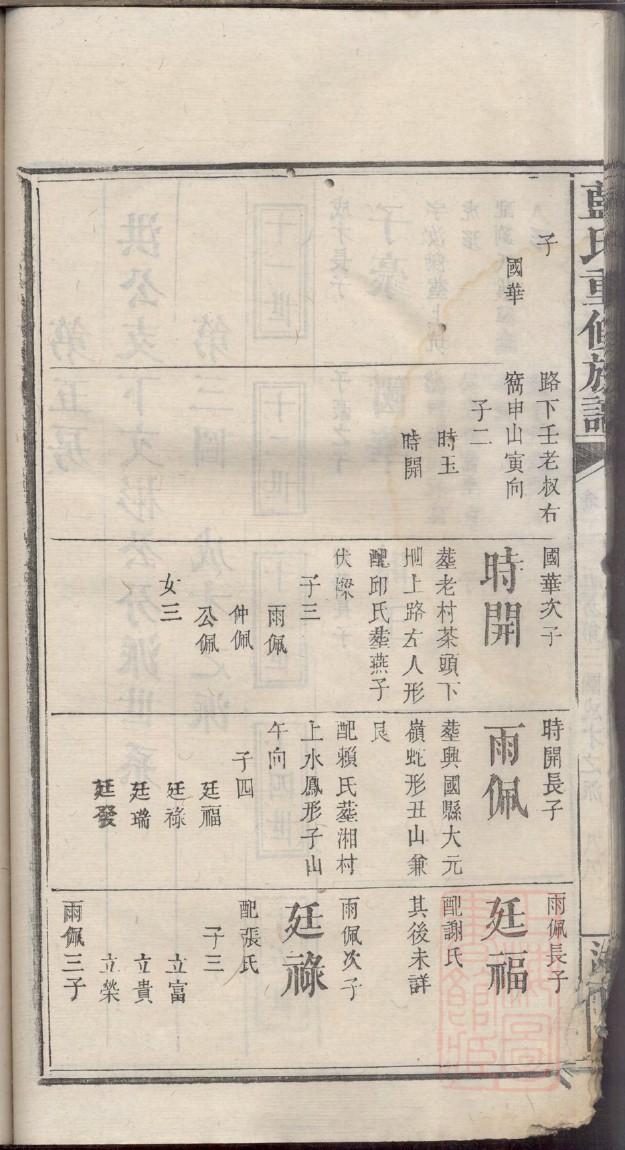 藍氏重修族譜
子
國華
路下壬老叔右
窩申山寅向
子二
時玉
時開
國華次子
時開
塟老村茶頭下
壠上路左人形
配邱氏塟燕子
伏樑
子三
雨佩
仲佩
公佩
女三
時開長子
雨佩
塟興國縣大元
嶺蛇形丑山兼
艮
配賴氏塟湘村
上水鳳形子山
午向
子四
廷福
廷祿
廷瑞
廷發
雨佩長子
廷福
配謝氏
其後未詳
雨佩次子
廷祿
配張氏
子三
立富
立貴
立榮
雨佩三子